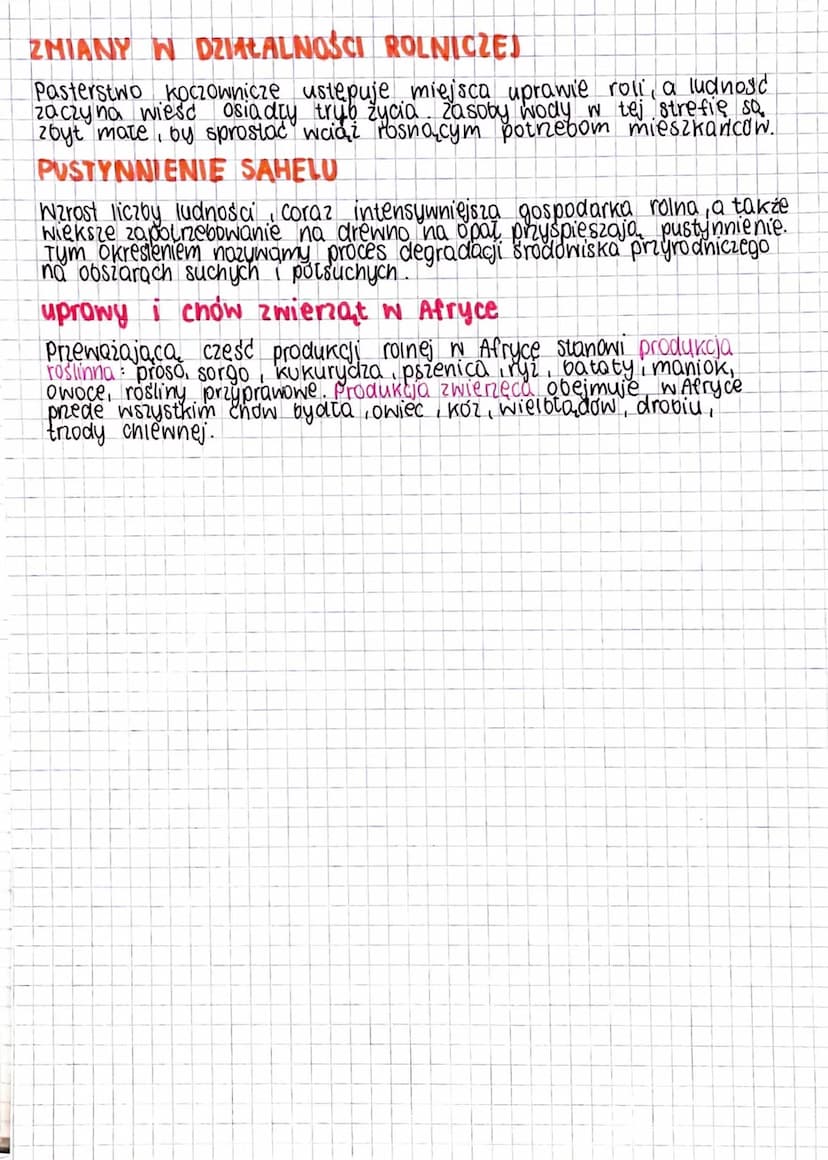 ZMIANY W DZIAŁALNOŚCI ROLNICZEJ
Pasterstwo koczownicze ustępuje miejsca uprawie roli, a ludność
zaczyna wieść osiadły tryb życia. Zasoby wody w tej strefie są
zbyt małe, by sprostać wciąż rosnącym potrzebom mieszkańców.
PUSTYNNIENIE SAHELU
Wzrost liczby ludności, coraz intensywniejsza gospodarka rolna, a także
większe zapotrzebowanie na drewno na opał przyśpieszają pustynnienie.
Tym określeniem nazywamy proces degradacji środowiska przyrodniczego
na obszarach suchych i półsuchych.
uprawy i chów zwierząt w Afryce
Przeważającą część produkcji rolnej w Afryce stanowi produkcja
roślinna: proso, sorgo, kukurydza, pszenica, ryż, bataty, maniok,
owoce, rośliny przyprawowe. Produkcja zwierzęca obejmuje w Afryce
przede wszystkim chów bydła, owiec, kóz, wielbłądów, drobiu,
trzody chlewnej.